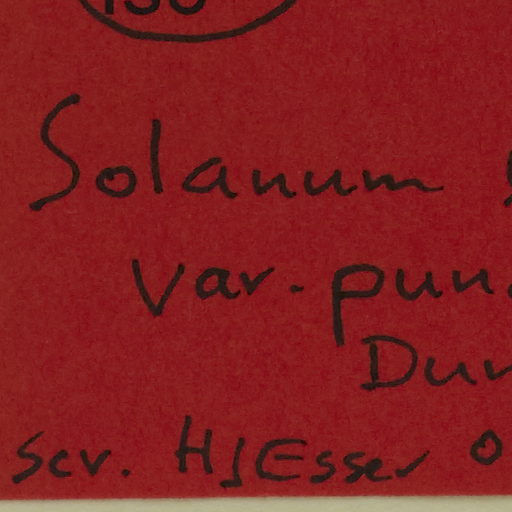 Solanum
var. pun
Dun
scr. HJEsser